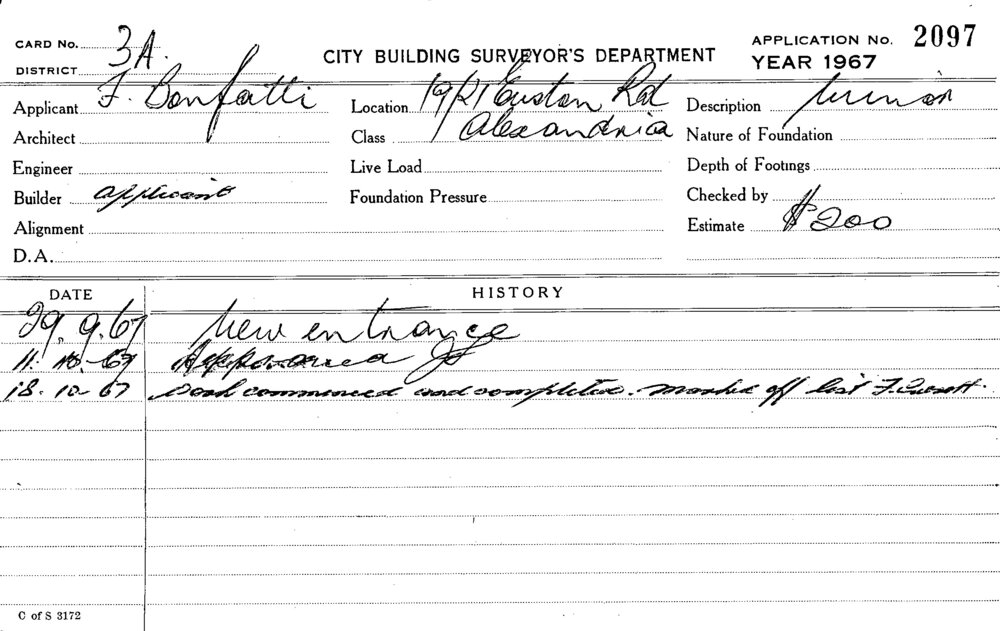 CARD No. 3A.
DISTRICT
CITY BUILDING SURVEYOR'S DEPARTMENT
APPLICATION No. 2097
YEAR 1967
Applicant F. Bonfatti
Location 19/21 Euston Rd
Description Minor
Architect
Class Alexandria
Nature of Foundation
Engineer
Live Load
Depth of Footings
Builder applicant
Foundation Pressure
Checked by
Alignment
Estimate $200
D.A.
DATE
HISTORY
29.9.67 New entrance
11.10.67 Approved
18.10.67 Work commenced and completed. Marked off list F.
C of S 3172